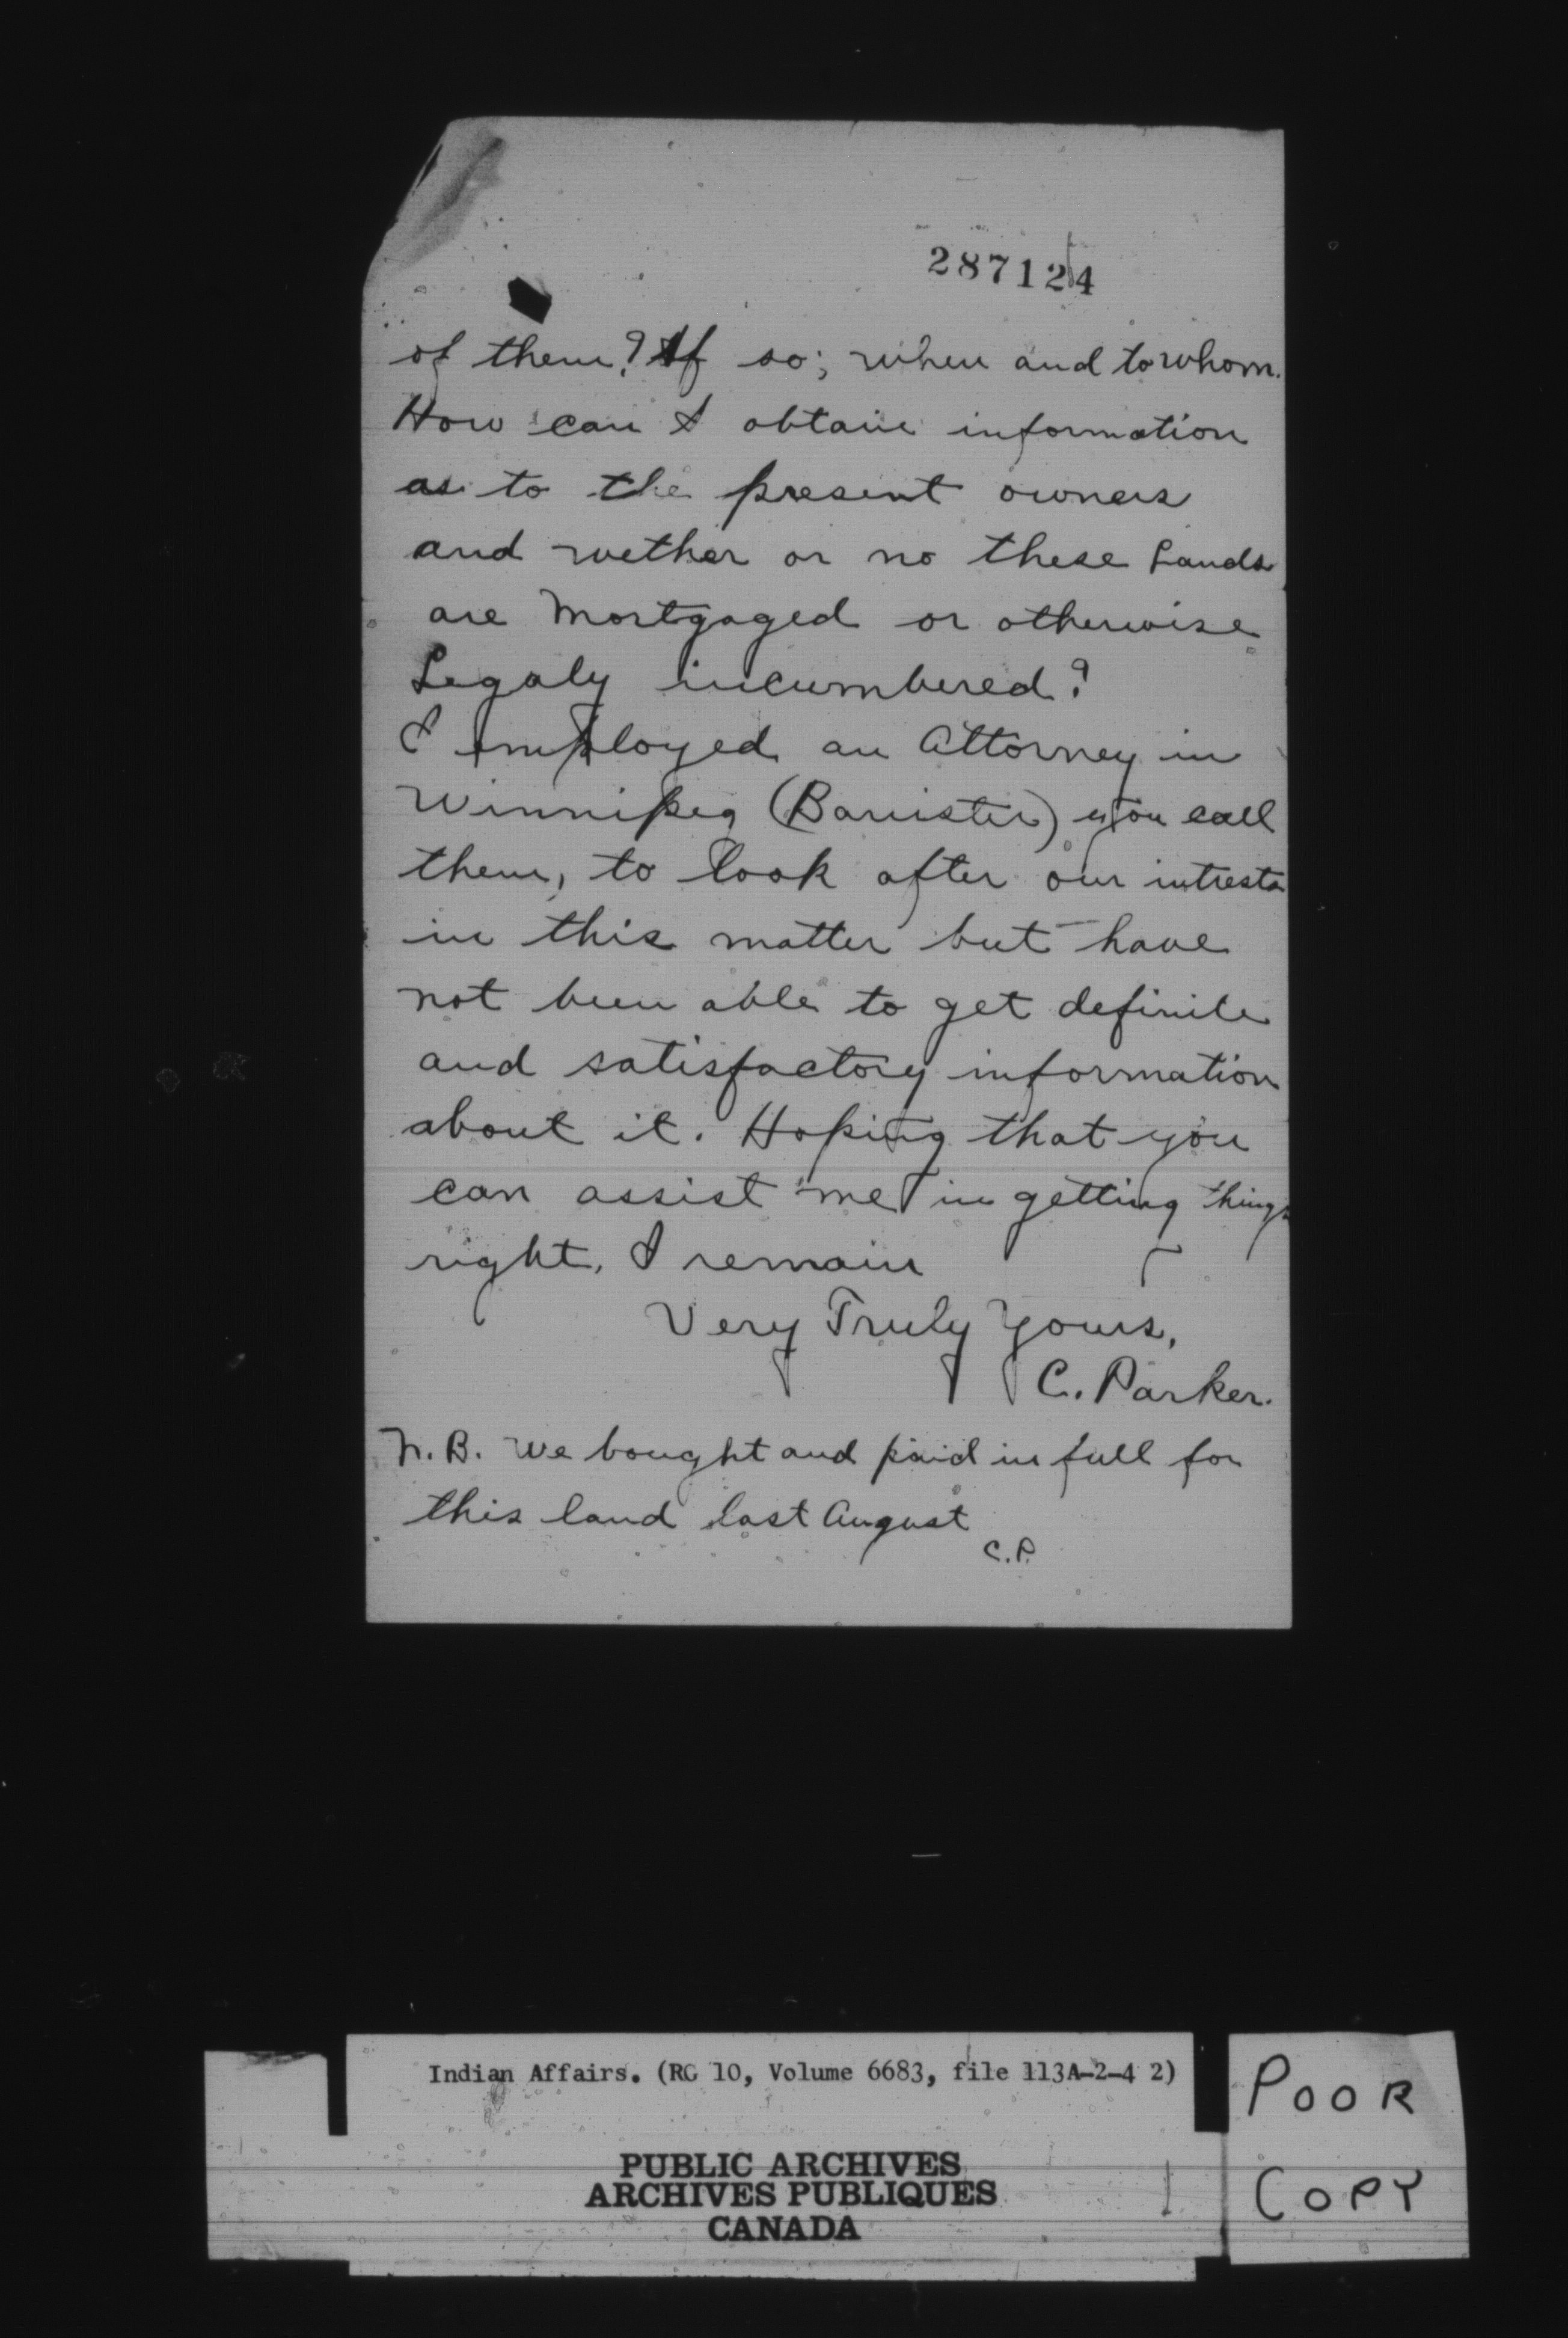 287124
of them? If so; when and to whom.
How can I obtain information
as to the present owners
and wether or no these Lands
are Mortgaged or otherwise
Legaly incumbered?
I employed an Attorney in
Winnipeg (Barrister) you call
them, to look after our intrests
in this matter but have
not been able to get definite
and satisfactory information
about it. Hoping that you
can assist me in getting things
right, I remain
Very Truly Yours,
C. Parker.
N.B. We bought and paid in full for
this land last August
C.P.
Indian Affairs. (RG 10, Volume 6683, file 113A-2-4 2)
PUBLIC ARCHIVES
ARCHIVES PUBLIQUES
CANADA
POOR
COPY